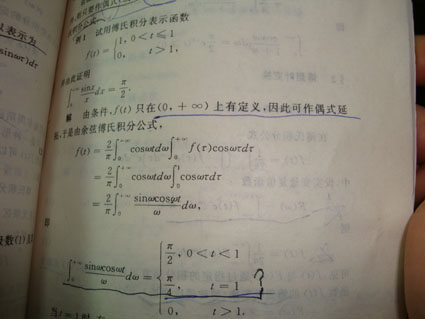 以表示为
sinωτ)dτ
例1 试用傅氏积分表示函数
f(t) = { 1, 0 < t ≤ 1
0, t > 1.
证明
∫₀ sinx/x dx = π/2.
解 由条件, f(t) 只在(0, +∞)上有定义, 因此可作偶式延
拓, 于是由余弦傅氏积分公式,
f(t) = 2/π ∫₀^{+∞} cosωtdω ∫₀^{+∞} f(τ)cosωτdτ
= 2/π ∫₀^{+∞} cosωtdω ∫₀^{1} cosωτdτ
= 2/π ∫₀^{+∞} sinωcosωt/ω dω,
即
∫₀^{+∞} sinωcosωt/ω dω = { π/2, 0 < t < 1
π/4, t = 1 ?
0, t > 1.
级数(1)
当 t = 1 时